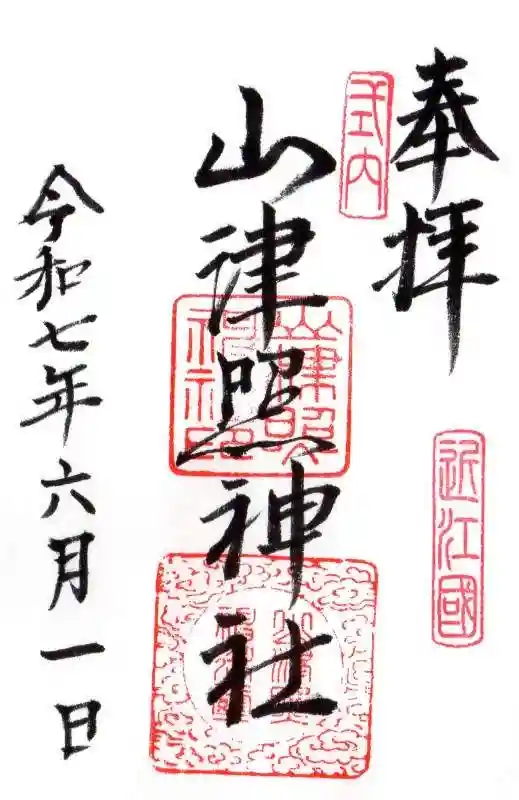 奉拝
近江國
式内
山津照神社
令和七年六月一日